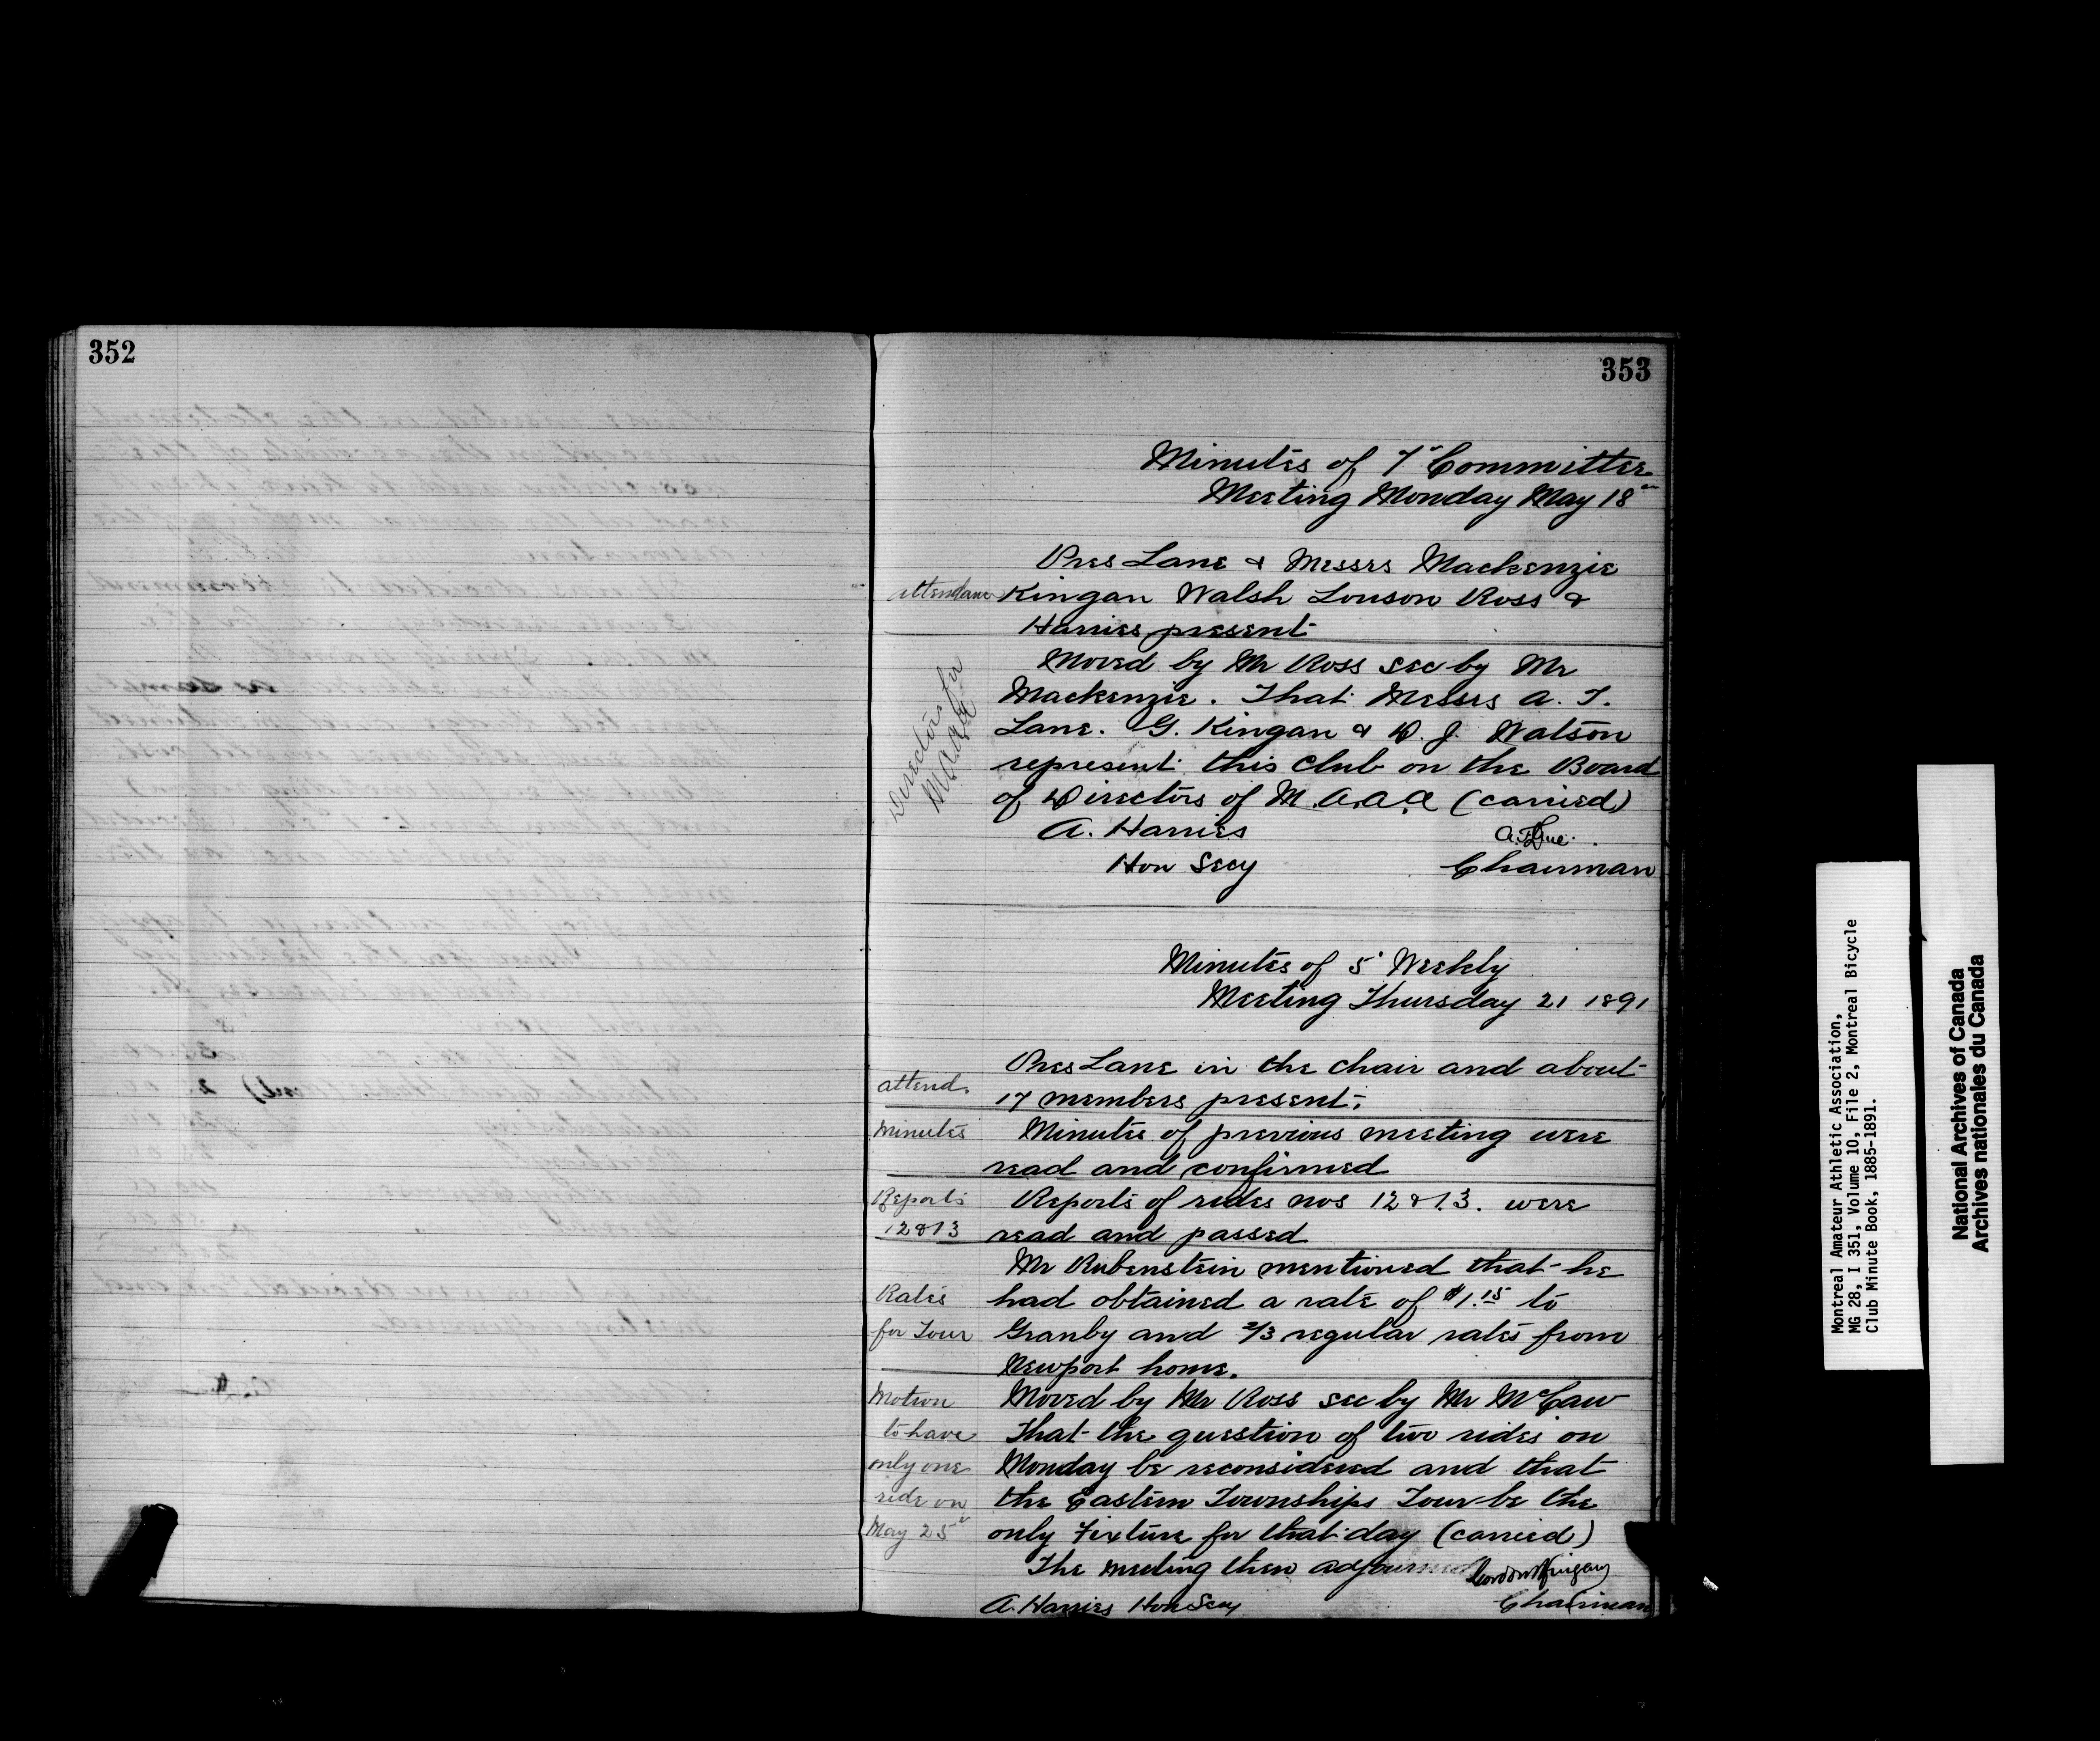 352
353
Minutes of 7" Committee
Meeting Monday May 18"
Pres Lane & Messrs Mackenzie
attendance Kingan Walsh Louson Ross &
Harries present
Directors for M A A A
Moved by Mr Ross sec by Mr
Mackenzie. That Messrs A. T.
Lane. G. Kingan & D. J. Watson
represent this club on the Board
of Directors of M.A.A.A (carried)
A. Harries A. T. Lane.
Hon Secy Chairman
Minutes of 5" Weekly
Meeting Thursday 21 1891
Pres Lane in the chair and about
attend. 17 members present.
Minutes Minutes of previous meeting were
read and confirmed
Reports Reports of rides nos 12 & 13. were
12 & 13 read and passed
Mr Rubenstein mentioned that he
Rates had obtained a rate of $1.15 to
for Tour Granby and 2/3 regular rates from
Newport home.
Motion Moved by Mr Ross sec by Mr McCaw
to have That the question of two rides on
only one Monday be reconsidered and that
ride on the Eastern Townships Tour be the
May 25" only Fixture for that day (carried)
The meeting then adjourned Gordon Kingan
A. Harries Hon Secy Chairman
Montreal Amateur Athletic Association,
MG 28, I 351, Volume 10, File 2, Montreal Bicycle
Club Minute Book, 1885-1891.
National Archives of Canada
Archives nationales du Canada